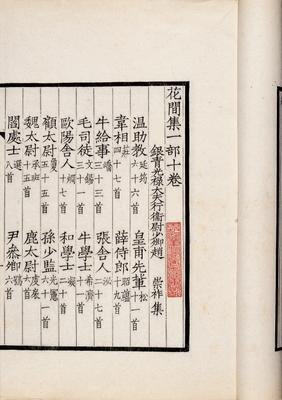 花間集一部十卷
銀青光祿大夫行衛尉少卿趙 崇祚集
溫助教庭筠六十六首 皇甫先輩松十一首
韋相莊四十七首 薛侍郎昭蘊十九首
牛給事嶠三十三首 張舍人泌二十七首
毛司徒文錫三十一首 牛學士希濟十一首
歐陽舍人炯十七首 和學士凝二十首
顧太尉敻五十五首 孫少監光憲六十一首
魏太尉承班十五首 鹿太尉虔扆六首
閻處士選八首 尹參卿鶚六首